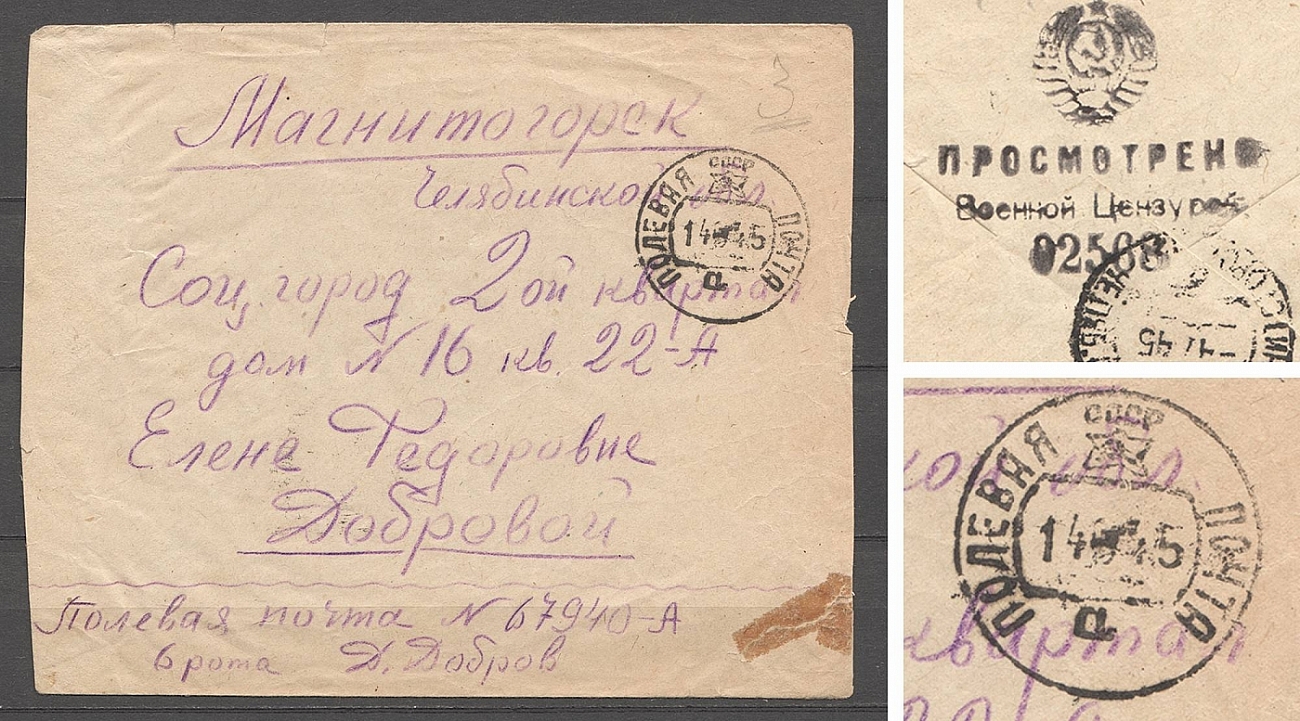 3
Магнитогорск
Челябинской обл.
Соц. город 2ой квартал
дом N 16 кв. 22-А
Елене Федоровне
Добровой
Полевая почта N 67940-А
6 рота Д. Добров
СССР
ПОЛЕВАЯ ПОЧТА
45
Р
ПРОСМОТРЕНО
Военной Цензурой
СССР
ПОЛЕВАЯ ПОЧТА
45
Р